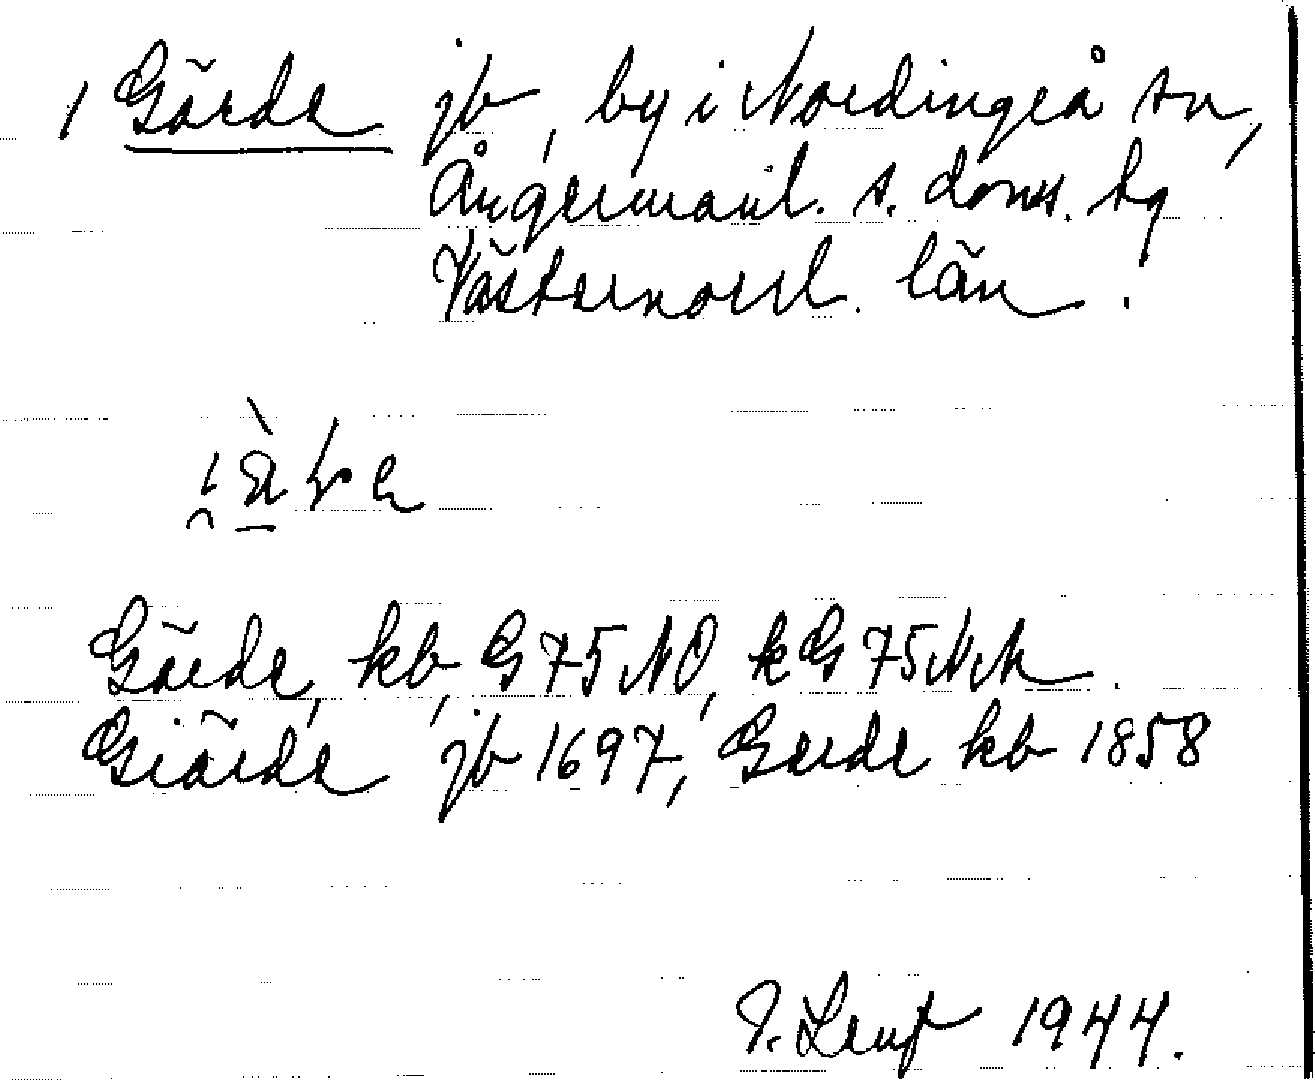 1 Gärde jb, by i Nordingrå sn,
Ångermanl. s. doms. tg
Västernorrl. län.
Gärde, kb, G 75 NO, kG 75 NV.
Giärde jb 1697, Gerde kb 1858
1944.